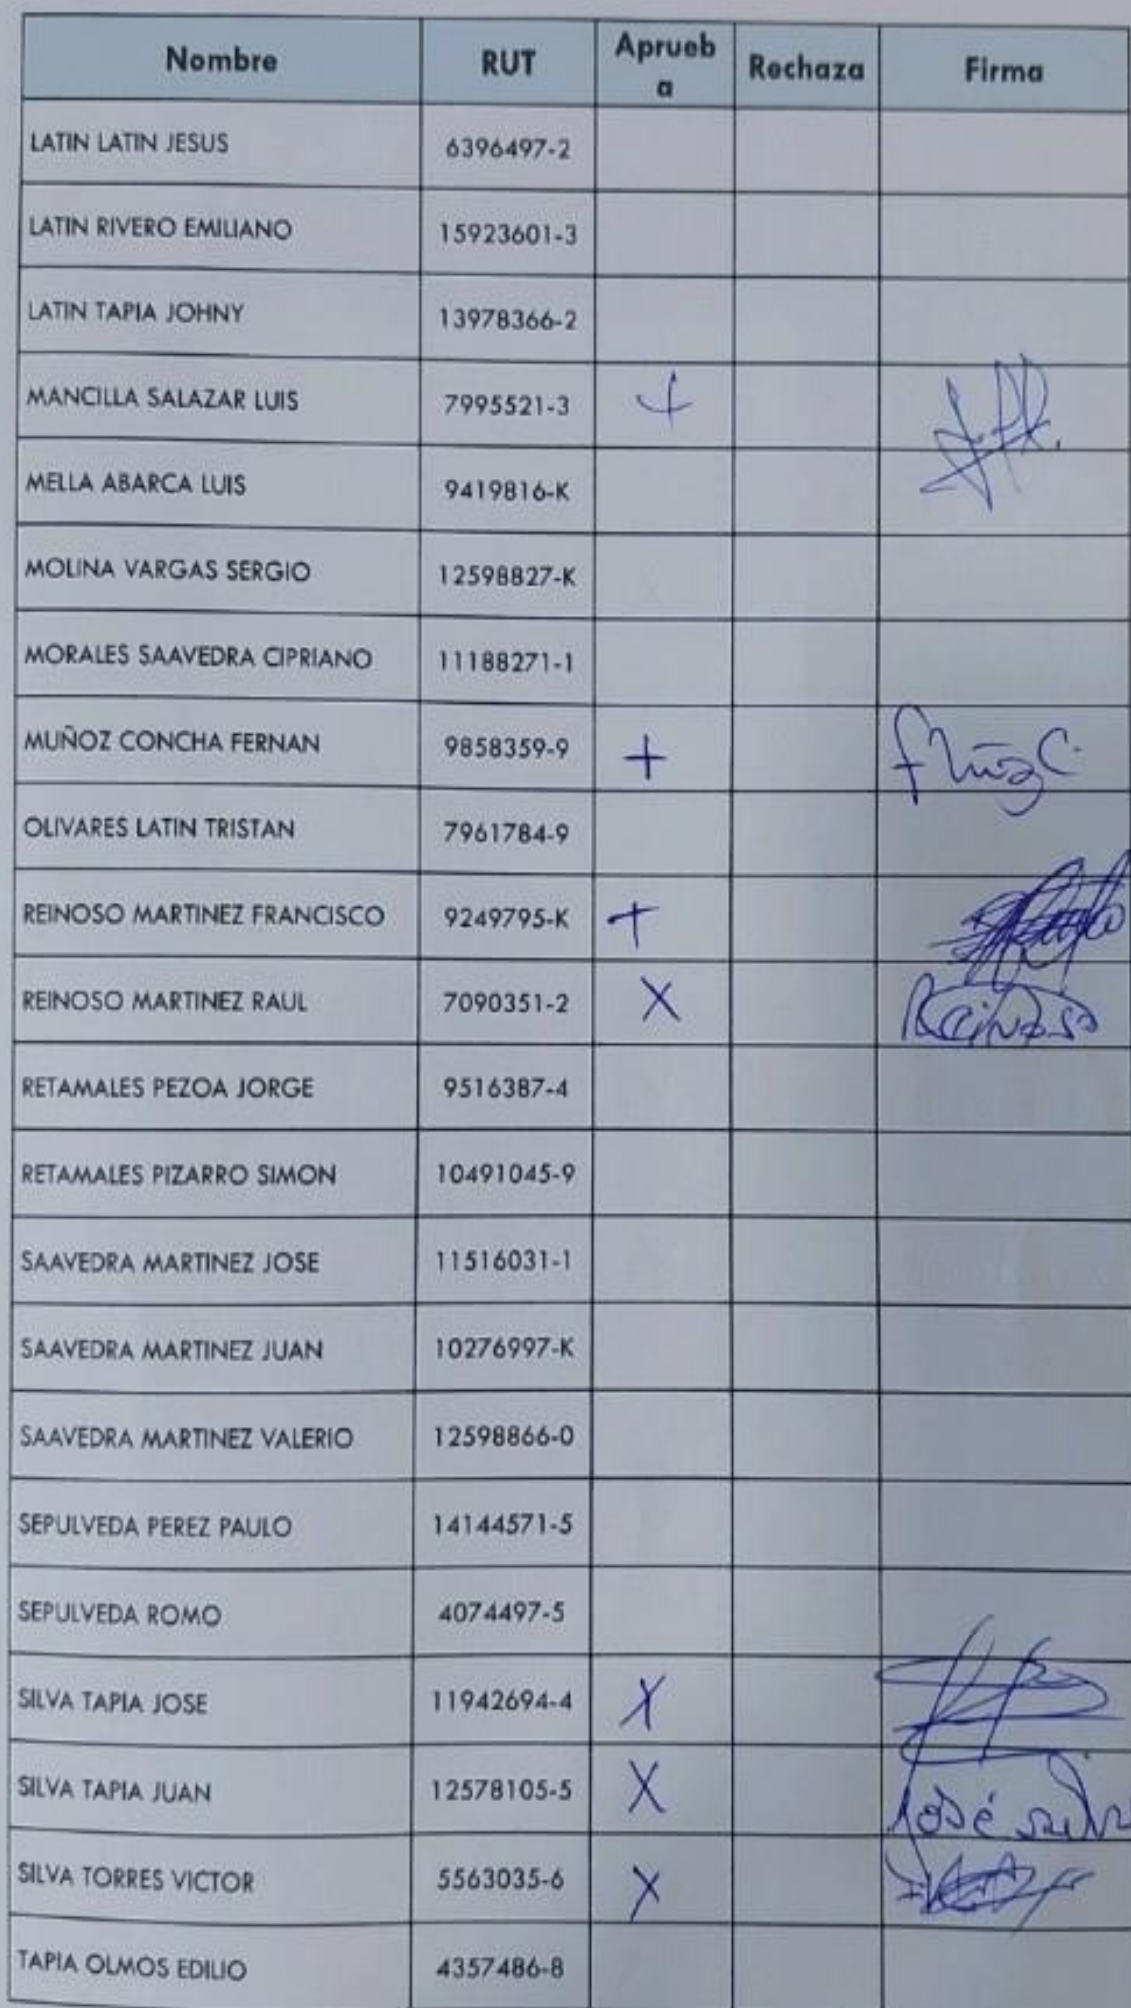 Nombre RUT Aprueba Rechaza Firma
LATIN LATIN JESUS 6396497-2
LATIN RIVERO EMILIANO 15923601-3
LATIN TAPIA JOHNY 13978366-2
MANCILLA SALAZAR LUIS 7995521-3 +
MELLA ABARCA LUIS 9419816-K
MOLINA VARGAS SERGIO 12598827-K
MORALES SAAVEDRA CIPRIANO 11188271-1
MUÑOZ CONCHA FERNAN 9858359-9 +
OLIVARES LATIN TRISTAN 7961784-9
REINOSO MARTINEZ FRANCISCO 9249795-K +
REINOSO MARTINEZ RAUL 7090351-2 X Reinoso
RETAMALES PEZOA JORGE 9516387-4
RETAMALES PIZARRO SIMON 10491045-9
SAAVEDRA MARTINEZ JOSE 11516031-1
SAAVEDRA MARTINEZ JUAN 10276997-K
SAAVEDRA MARTINEZ VALERIO 12598866-0
SEPULVEDA PEREZ PAULO 14144571-5
SEPULVEDA ROMO 4074497-5
SILVA TAPIA JOSE 11942694-4 X
SILVA TAPIA JUAN 12578105-5 X José Silva
SILVA TORRES VICTOR 5563035-6 X
TAPIA OLMOS EDILIO 4357486-8